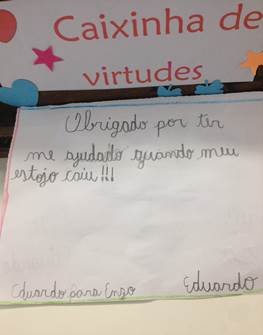 Caixinha de
virtudes
Obrigado por ter
me ajudado quando meu
estojo caiu!!!
Eduardo para Enzo
Eduardo